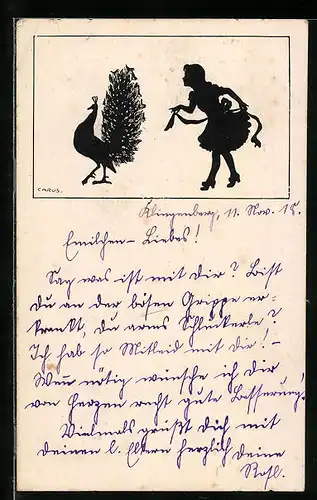 CARUS.
Klingenberg, 11. Nov. 18.
Emilchen - Liebes!
Sag was ist mit dir? Bist
du an der bösen Grippe er-
krankt, du armes Schluckerle?
Ich hab so Mitleid mit dir! -
Wenn nötig wünsche ich dir
von Herzen recht gute Besserung!
Vielmals grüßt dich mit
deinen l. Eltern herzlich deine
Rosl.